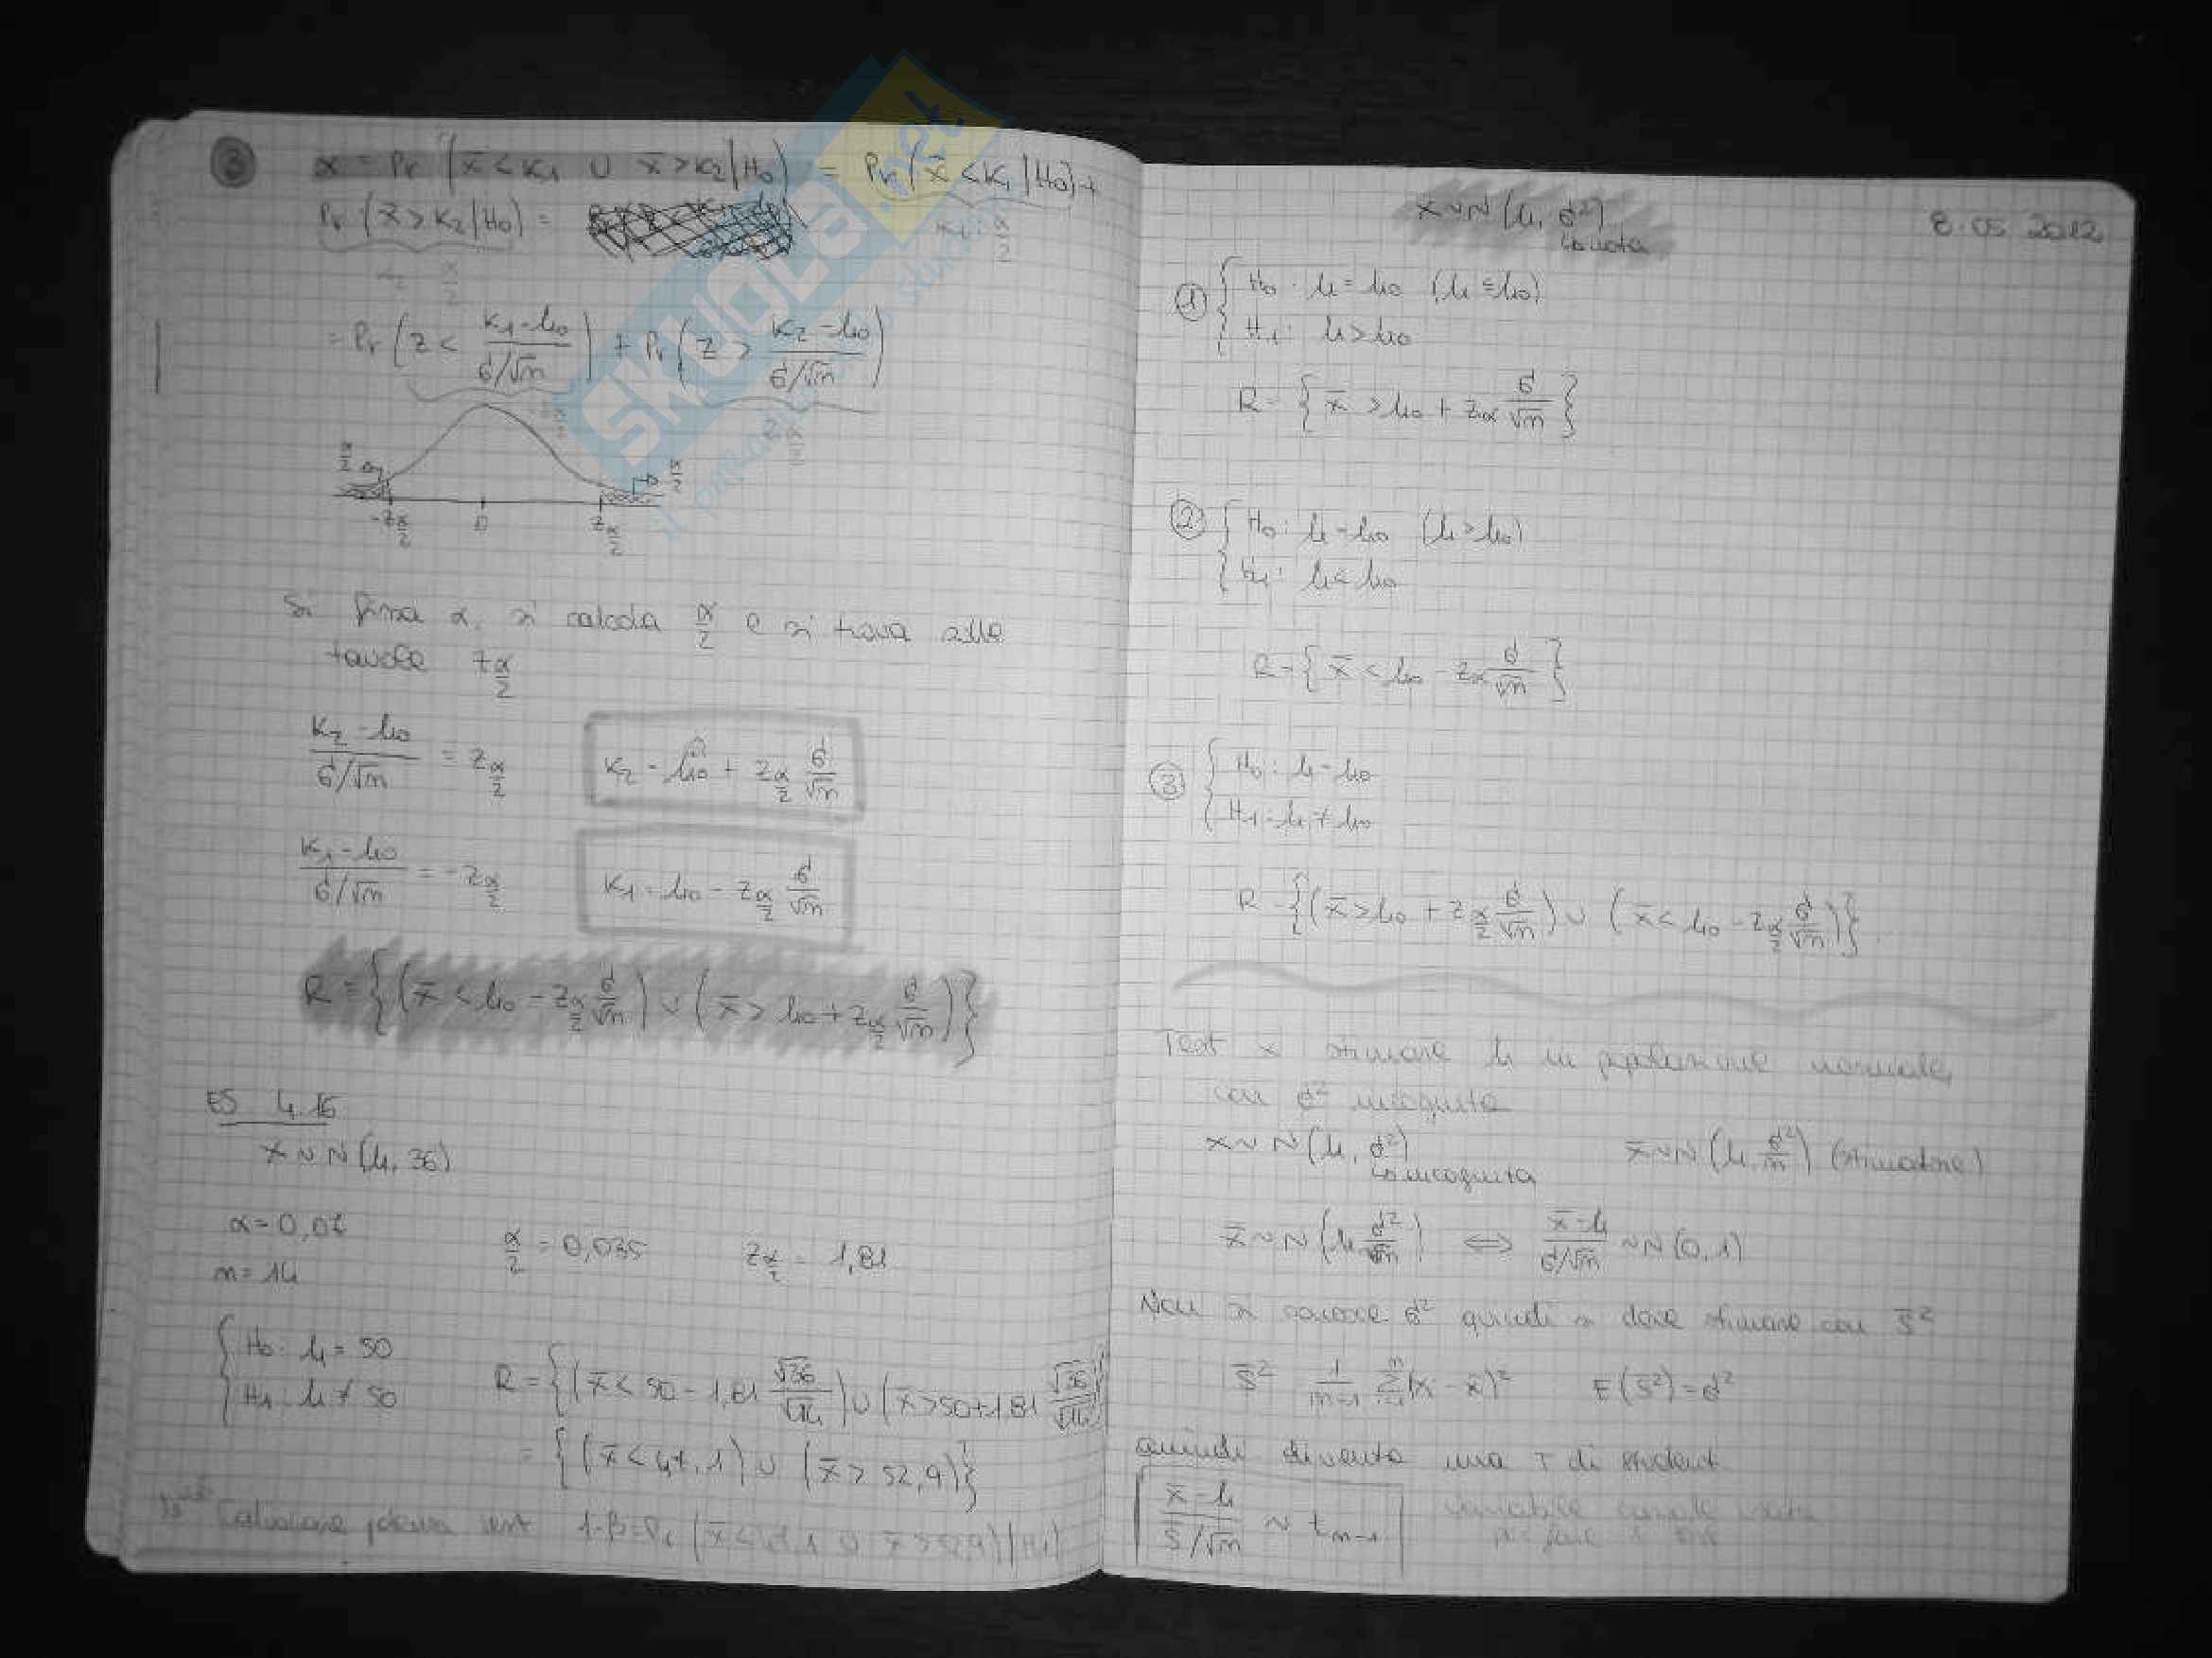 3 α = Pr (x̄ < K1 ∪ x̄ > K2 | H0) = Pr (x̄ < K1 | H0) +
Pr (x̄ > K2 | H0) =
α/2
= Pr (Z < (K1 - μ0)/(σ/√n)) + Pr (Z > (K2 - μ0)/(σ/√n))
α/2 α/2
-Zα/2 0 Zα/2
Si fissa α, si calcola α/2 e si trova alle
tavole Zα/2
(K2 - μ0)/(σ/√n) = Zα/2 K2 = μ0 + Zα/2 σ/√n
(K1 - μ0)/(σ/√n) = -Zα/2 K1 = μ0 - Zα/2 σ/√n
R = {(x̄ < μ0 - Zα/2 σ/√n) ∪ (x̄ > μ0 + Zα/2 σ/√n)}
ES 4.16
X ~ N(μ, 36)
α = 0,07 α/2 = 0,035 Zα/2 = 1,81
n = 14
H0: μ = 50
H1: μ ≠ 50
R = {(x̄ < 50 - 1,81 √36/√14) ∪ (x̄ > 50 + 1,81 √36/√14)}
= {(x̄ < 47,1) ∪ (x̄ > 52,9)}
Calcolare potenza test 1-β = Pr (x̄ < 47,1 ∪ x̄ > 52,9) | H1)
X ~ N(μ, σ²) 8.05.2012
↳ nota
1 H0: μ = μ0 (μ ≤ μ0)
H1: μ > μ0
R = {x̄ > μ0 + Zα σ/√n}
2 H0: μ = μ0 (μ > μ0)
H1: μ < μ0
R = {x̄ < μ0 - Zα σ/√n}
3 H0: μ = μ0
H1: μ ≠ μ0
R = {(x̄ > μ0 + Zα/2 σ/√n) ∪ (x̄ < μ0 - Zα/2 σ/√n)}
Test x stimare μ in popolazione normale,
con σ² incognita
X ~ N(μ, σ²) x̄ ~ N(μ, σ²/n) (stimatore)
↳ incognita
x̄ ~ N(μ, σ²/n) ⟺ (x̄ - μ)/(σ/√n) ~ N(0, 1)
Non si conosce σ² quindi si deve stimare con S̄²
S̄² 1/(n-1) Σ(xi - x̄)² E(S̄²) = σ²
quindi diventa una T di student
(x̄ - μ)/(S̄/√n) ~ tn-1 variabile casuale
SKUOLA.net